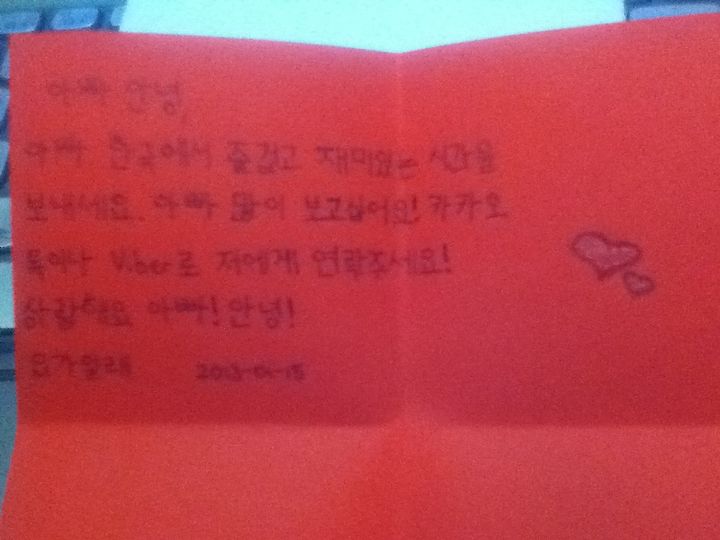 아빠 안녕,
아빠 한국에서 즐겁고 재미있는 시간을
보내세요. 아빠 많이 보고싶어요! 카카오
톡이나 Viber로 저에게 연락주세요!
사랑해요 아빠! 안녕!